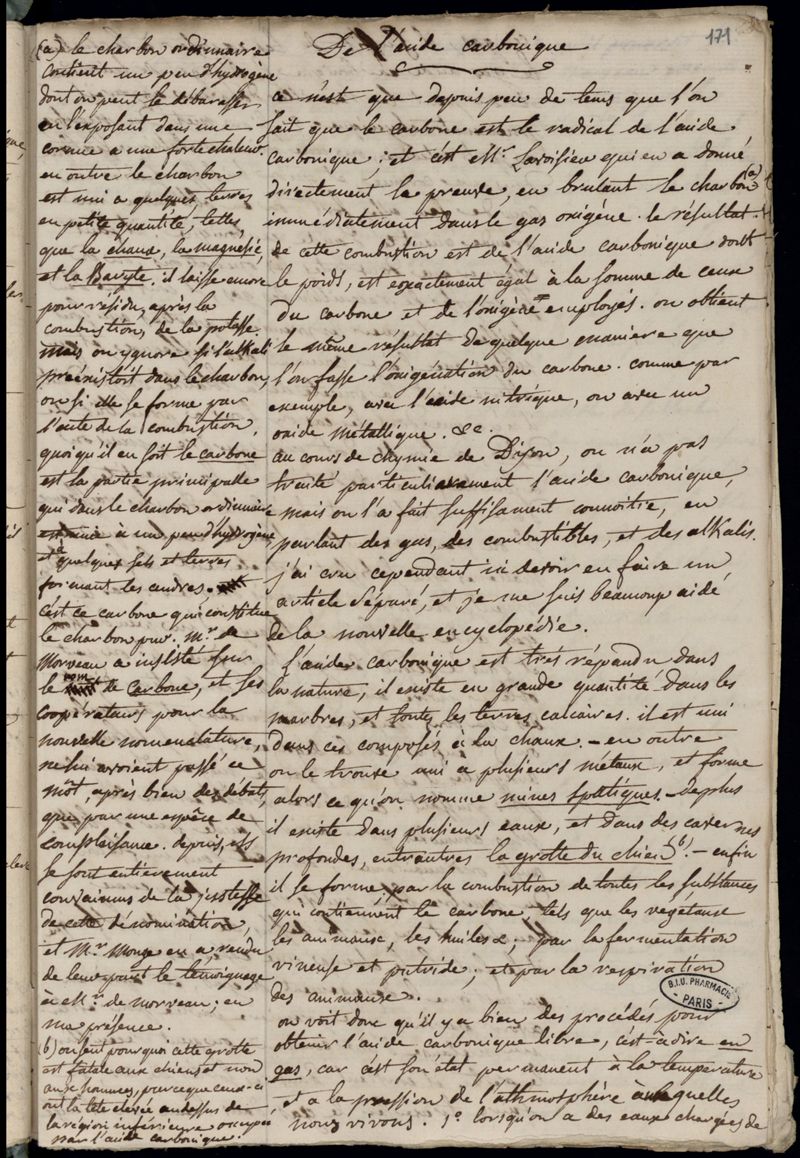 171
De l'acide carbonique
ce n'est que depuis peu de tems que l'on
sait que le carbone est le radical de l'acide
carbonique ; et c'est Mr. Lavoisier qui en a donné
directement la preuve, en brulant le charbon (a)
immédiatement dans le gas oxigène. le résultat
de cette combustion est de l'acide carbonique dont
le poids, est exactement égal à la somme de ceux
du carbone et de l'oxigène employés. on obtient
le même résultat de quelque maniere que
l'on fasse l'oxigénation du carbone. comme par
exemple, avec l'acide nitrique, ou avec un
oxide métallique. &c.
au cours de chymie de Dijon, on n'a pas
traité particulierement l'acide carbonique,
mais on l'a fait suffisament connoitre, en
parlant des gas, des combustibles, et des alkalis.
j'ai cru cependant ici devoir en faire un
article séparé, et je me suis beaucoup aidé
de la nouvelle encyclopédie.
l'acide carbonique est très répandu dans
la nature, il existe en grande quantité dans les
marbres, et toutes les terres calcaires. il est uni
dans ces composés à la chaux. - en outre
on le trouve uni a plusieurs métaux, et forme
alors ce qu'on nomme mines spatiques. - deplus
il existe dans plusieurs eaux, et dans des cavernes
profondes, entr'autres la grotte du chien (b). - enfin
il se forme par la combustion de toutes les substances
qui contiennent le carbone, tels que les vegetaux
les animaux, les huiles &, ; par la fermentation
vineuse et putride ; et par la respiration
des animaux.
on voit donc qu'il y a bien des procédés pour
obtenir l'acide carbonique libre, c'est-à-dire en
gas, car c'est son état permanent à la temperature
et a la pression de l'athmosphère auxquelles
nous vivons. 1° lorsqu'on a des eaux chargées de
(a) le charbon ordinnaire
contient un peu d'hydrogène
dont on peut le débarasser
en l'exposant dans une
cornue a une forte chaleur.
en outre le charbon
est uni a quelques terres
en petite quantité, telles,
que la chaux, la magnesie,
et la Baryte. il laisse encore
pour résidu, après la
combustion, de la potasse.
mais on ygnore si l'alkali
préexistoit dans le charbon,
ou si elle se forme par
l'acte de la combustion.
quoiqu'il en soit le carbone
est la partie principalle
qui dans le charbon ordinaire
est unie à un peu d'hydrogène
et a quelques sels et terres
formant les cendres.
c'est ce carbone qui constitue
le charbon pur. Mr. de
Morveau a insisté sur
le nom de Carbone, et ses
coopérateurs pour la
nouvelle nomenclature,
ne lui avoient passé ce
mot, après bien des débats,
que par une espèce de
complaisance. depuis, ils
se sont entierement
convaincus de la justesse
de cette dénomination,
et Mr. Monge en a rendu
de leur part le témoignage
à Mr. de Morveau ; en
ma présence.
(b) on sent pourquoi cette grotte
est fatale aux chiens et non
aux hommes, parceque ceux-ci
ont la tête élevée au dessus de
la région inférieure occupée
par l'acide carbonique.
B.I.U. PHARMACIE
PARIS